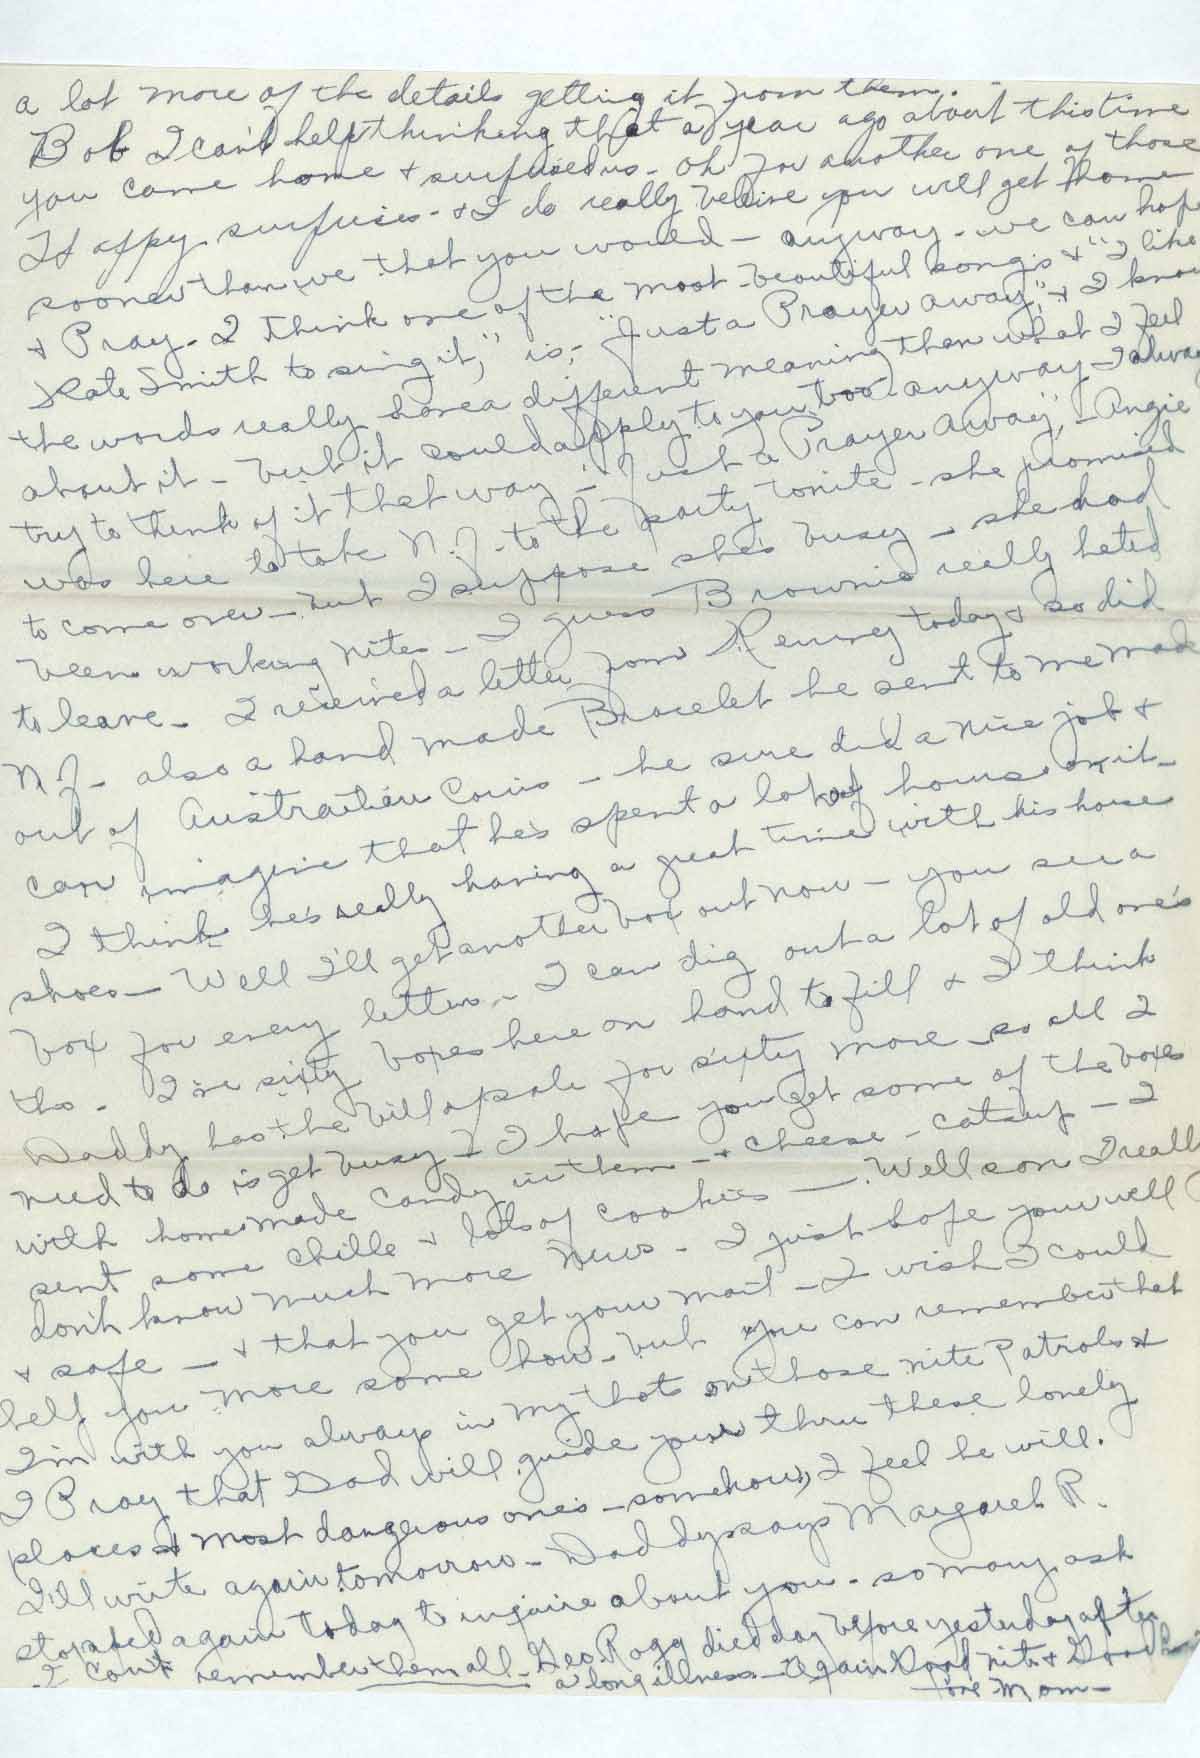 a lot more of the details getting it from them.
Bob I can't help thinking that a year ago about this time
you came home & surprised us - oh for another one of those
Happy surprises - & I do really believe you will get home
sooner than we that you would - anyway - we can hope
& Pray - I think one of the most beautiful songs & "I like
Kate Smith to sing it," is, - "Just a Prayer away," & I know
the words really have a different meaning than what I feel
about it - but it could apply to you too anyway I always
try to think of it that way - "Just a Prayer Away," - Angie
was here to take N.J. to the party tonite - she promised
to come over - but I suppose she's busy - she had
been working nites - I guess Brownie really hated
to leave - I received a letter from Kenney today & so did
N.J. - also a hand made Bracelet he sent to me made
out of Australian Coins - he sure did a nice job &
can imagine that he's spent a lot of hours on it -
I think he's really having a great time with his horse
shoes - Well I'll get another box out now - you see a
box for every letter - I can dig out a lot of old one's
tho - I've sixty boxes here on hand to fill & I think
Daddy has the bill of sale for sixty more - so all I
need to do is get busy - I hope you get some of the boxes
with home made candy in them - & cheese - catsup - I
sent some chille & lots of cookies - Well son I really
don't know much more news - I just hope you well
& safe - & that you get your mail - I wish I could
help you more some how - but you can remember that
I'm with you always in my thots on those nite Patrols &
I Pray that God will guide you thru these lonely
places & most dangerous one's - somehow, I feel he will.
I'll write again tomorrow - Daddy says Margaret R.
stopped again today to inquire about you - so many ask
I can't remember them all - Geo. Rogg died day before yesterday after
a long illness - Again Good nite & Good
Love Mom -